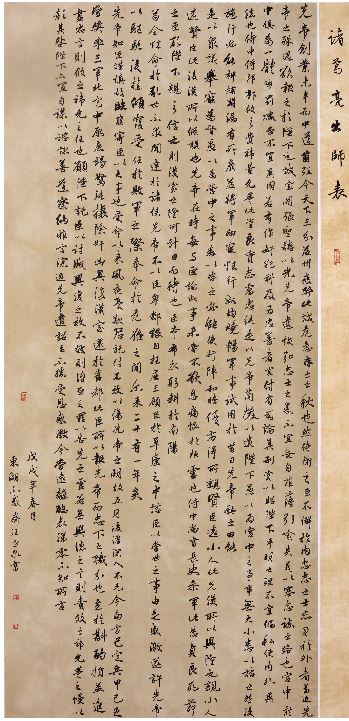 诸葛亮出师表
先帝創業未半而中道崩殂今天下三分益州疲弊此誠危急存亡之秋也然侍衛之臣不懈於內忠志之士忘身於外者蓋追先
帝之殊遇欲報之於陛下也誠宜開張聖聽以光先帝遺德恢弘志士之氣不宜妄自菲薄引喻失義以塞忠諫之路也宮中府
中俱為一體陟罰臧否不宜異同若有作奸犯科及為忠善者宜付有司論其刑賞以昭陛下平明之理不宜偏私使內外異
法也侍中侍郎郭攸之費禕董允等此皆良實志慮忠純是以先帝簡拔以遺陛下愚以為宮中之事事無大小悉以諮之然後
施行必能裨補闕漏有所廣益將軍向寵性行淑均曉暢軍事試用於昔日先帝稱之曰能
是以眾議舉寵為督愚以為營中之事悉以諮之必能使行陣和睦優劣得所親賢臣遠小人此先漢所以興隆也親小人
遠賢臣此後漢所以傾頹也先帝在時每與臣論此事未嘗不歎息痛恨於桓靈也侍中尚書長史參軍此悉貞良死節
之臣願陛下親之信之則漢室之隆可計日而待也臣本布衣躬耕於南陽
苟全性命於亂世不求聞達於諸侯先帝不以臣卑鄙猥自枉屈三顧臣於草廬之中諮臣以當世之事由是感激遂許先帝
以驅馳後值傾覆受任於敗軍之際奉命於危難之間爾來二十有一年矣
先帝知臣謹慎故臨崩寄臣以大事也受命以來夙夜憂歎恐託付不效以傷先帝之明故五月渡瀘深入不毛今南方已定兵甲已足
當獎率三軍北定中原庶竭駑鈍攘除奸凶興復漢室還於舊都此臣所以報先帝而忠陛下之職分也至於斟酌損益進
盡忠言則攸之禕允之任也願陛下託臣以討賊興復之效不效則治臣之罪以告先帝之靈若無興德之言則責攸之禕允等之慢以
彰其咎陛下亦宜自謀以諮諏善道察納雅言深追先帝遺詔臣不勝受恩感激今當遠離臨表涕零不知所言
戊戌年春月